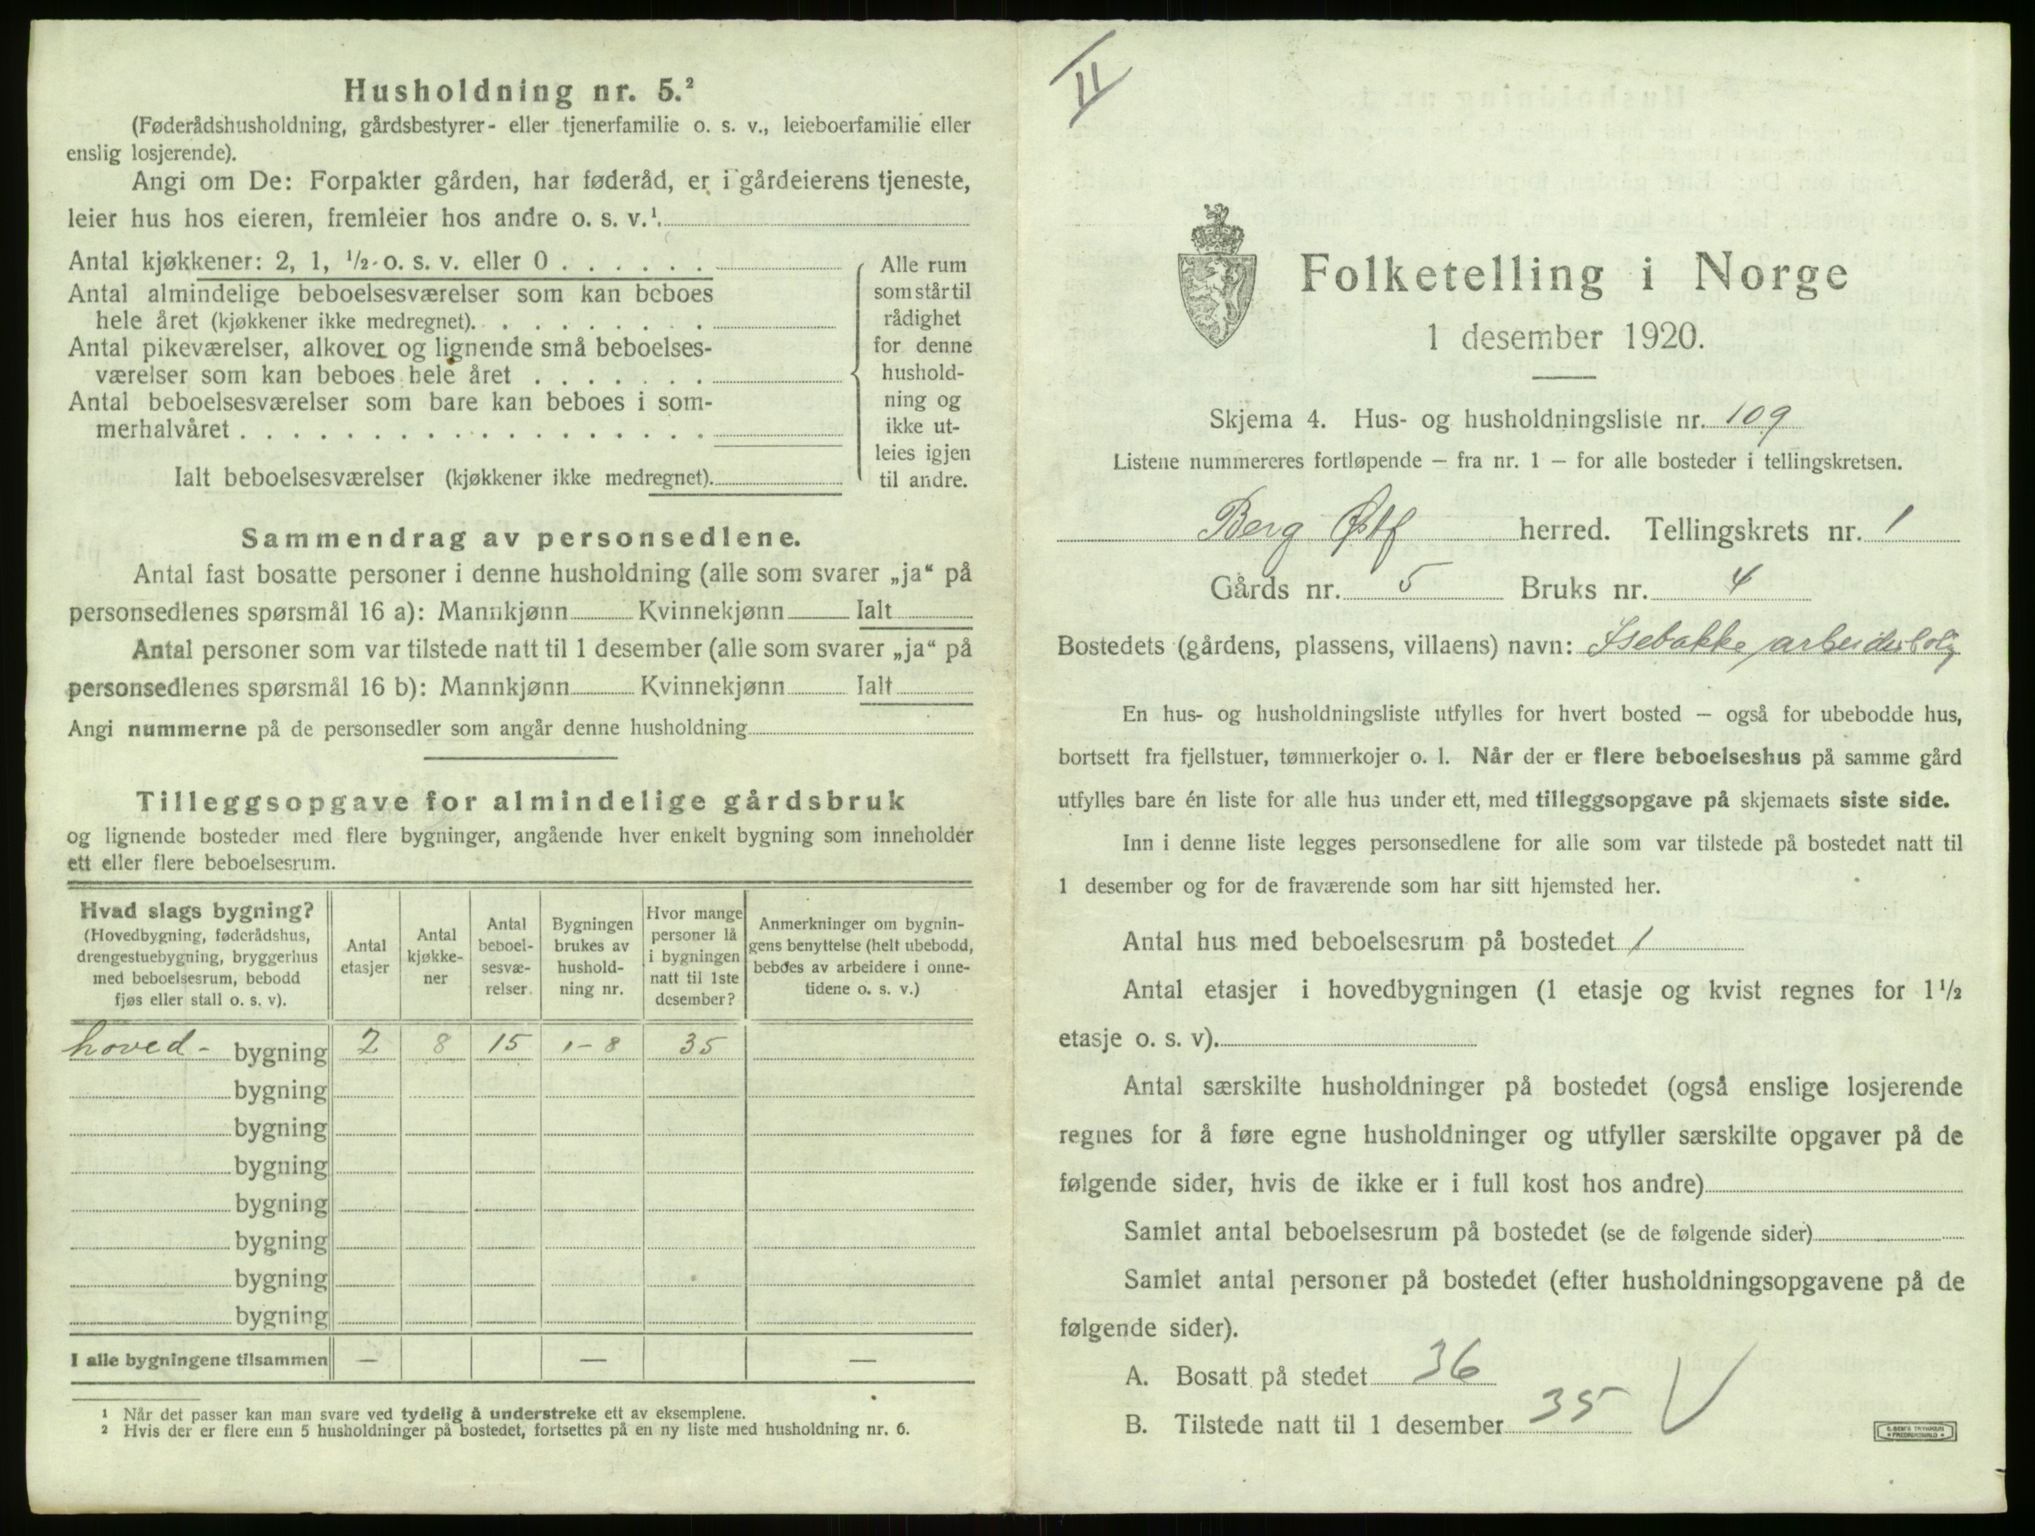 Husholdning nr. 5.²
(Føderådshusholdning, gårdsbestyrer- eller tjenerfamilie o. s. v., leieboerfamilie eller
enslig losjerende).
Angi om De: Forpakter gården, har føderåd, er i gårdeierens tjeneste,
leier hus hos eieren, fremleier hos andre o. s. v.¹
Antal kjøkkener: 2, 1, ½ o. s. v. eller 0
Antal almindelige beboelsesværelser som kan beboes
hele året (kjøkkener ikke medregnet)
Antal pikeværelser, alkover og lignende små beboelses-
værelser som kan beboes hele året
Antal beboelsesværelser som bare kan beboes i som-
merhalvåret
Ialt beboelsesværelser (kjøkkener ikke medregnet)
Alle rum
som står til
rådighet
for denne
hushold-
ning og
ikke ut-
leies igjen
til andre.
Sammendrag av personsedlene.
Antal fast bosatte personer i denne husholdning (alle som svarer „ja“ på
personsedlenes spørsmål 16 a): Mannkjønn Kvinnekjønn Ialt
Antal personer som var tilstede natt til 1 desember (alle som svarer „ja“ på
personsedlenes spørsmål 16 b): Mannkjønn Kvinnekjønn Ialt
Angi nummerne på de personsedler som angår denne husholdning
Tilleggsopgave for almindelige gårdsbruk
og lignende bosteder med flere bygninger, angående hver enkelt bygning som inneholder
ett eller flere beboelsesrum.
Hvad slags bygning?
(Hovedbygning, føderådshus,
drengestuebygning, bryggerhus
med beboelsesrum, bebodd
fjøs eller stall o. s. v).
Antal
etasjer
Antal
kjøkke-
ner
Antal
beboel-
sesvæ-
relser
Bygningen
brukes av
hushold-
ning nr.
Hvor mange
personer lå
i bygningen
natt til 1ste
desember?
Anmerkninger om bygnin-
gens benyttelse (helt ubebodd,
beboes av arbeidere i onne-
tidene o. s. v.)
hoved- bygning 2 8 15 1-8 35
bygning
bygning
bygning
bygning
bygning
bygning
bygning
I alle bygningene tilsammen — — —
¹ Når det passer kan man svare ved tydelig å understreke ett av eksemplene.
² Hvis der er flere enn 5 husholdninger på bostedet, fortsettes på en ny liste med husholdning nr. 6.
II
Folketelling i Norge
1 desember 1920.
Skjema 4. Hus- og husholdningsliste nr. 109
Listene nummereres fortløpende – fra nr. 1 – for alle bosteder i tellingskretsen.
Berg Østf herred. Tellingskrets nr. 1
Gårds nr. 5 Bruks nr. 4
Bostedets (gårdens, plassens, villaens) navn: Isebakke arbeiderbolig
En hus- og husholdningsliste utfylles for hvert bosted – også for ubebodde hus,
bortsett fra fjellstuer, tømmerkojer o. l. Når der er flere beboelseshus på samme gård
utfylles bare én liste for alle hus under ett, med tilleggsopgave på skjemaets siste side.
Inn i denne liste legges personsedlene for alle som var tilstede på bostedet natt til
1 desember og for de fraværende som har sitt hjemsted her.
Antal hus med beboelsesrum på bostedet 1
Antal etasjer i hovedbygningen (1 etasje og kvist regnes for 1½
etasje o. s. v).
Antal særskilte husholdninger på bostedet (også enslige losjerende
regnes for å føre egne husholdninger og utfyller særskilte opgaver på de
følgende sider, hvis de ikke er i full kost hos andre)
Samlet antal beboelsesrum på bostedet (se de følgende sider)
Samlet antal personer på bostedet (efter husholdningsopgavene på de
følgende sider).
A. Bosatt på stedet 36
B. Tilstede natt til 1 desember 35 V